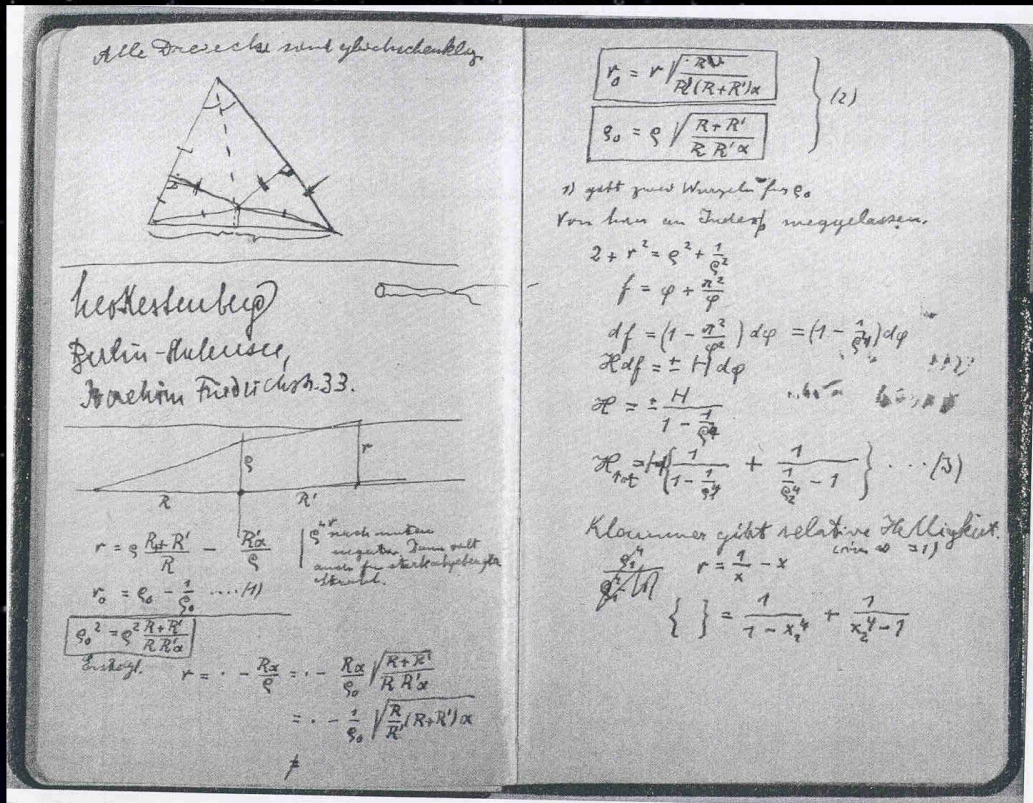 Alle Dreiecke sind gleichschenklig
Leo Kestenberg
Berlin-Halensee,
Joachim Friedrichstr. 33.
ρ
r
R
R'
r = ρ (R+R')/R − R'α/ρ
ρ nach unten
negativ. Dann gilt
auch für stark abgebeugten
Strahl.
r₀ = ρ₀ − 1/ρ₀ .... (1)
ρ₀² = ρ² (R+R')/(R R'α)
r = · − Rα/ρ = · − Rα/ρ₀ √((R+R')/(R R'α))
= · − 1/ρ₀ √(R/R' (R+R')α)
r₀ = r √(R/(R'(R+R')α))
ρ₀ = ρ √((R+R')/(R R'α))
} (2)
1) gibt zwei Wurzeln für ρ₀
Von hier an Index weggelassen.
2 + r² = ρ² + 1/ρ²
f = φ + π²/φ
df = (1 − π²/φ²) dφ = (1 − 1/ρ⁴) dφ
H df = ± H dφ
H = ± H/(1 − 1/ρ⁴)
H tot = H {1/(1 − 1/ρ₁⁴) + 1/(1/ρ₂⁴ − 1)} .... (3)
Klammer gibt relative Helligkeit.
r = 1/x − x
{ } = 1/(1 − x₁⁴) + 1/(x₂⁴ − 1)